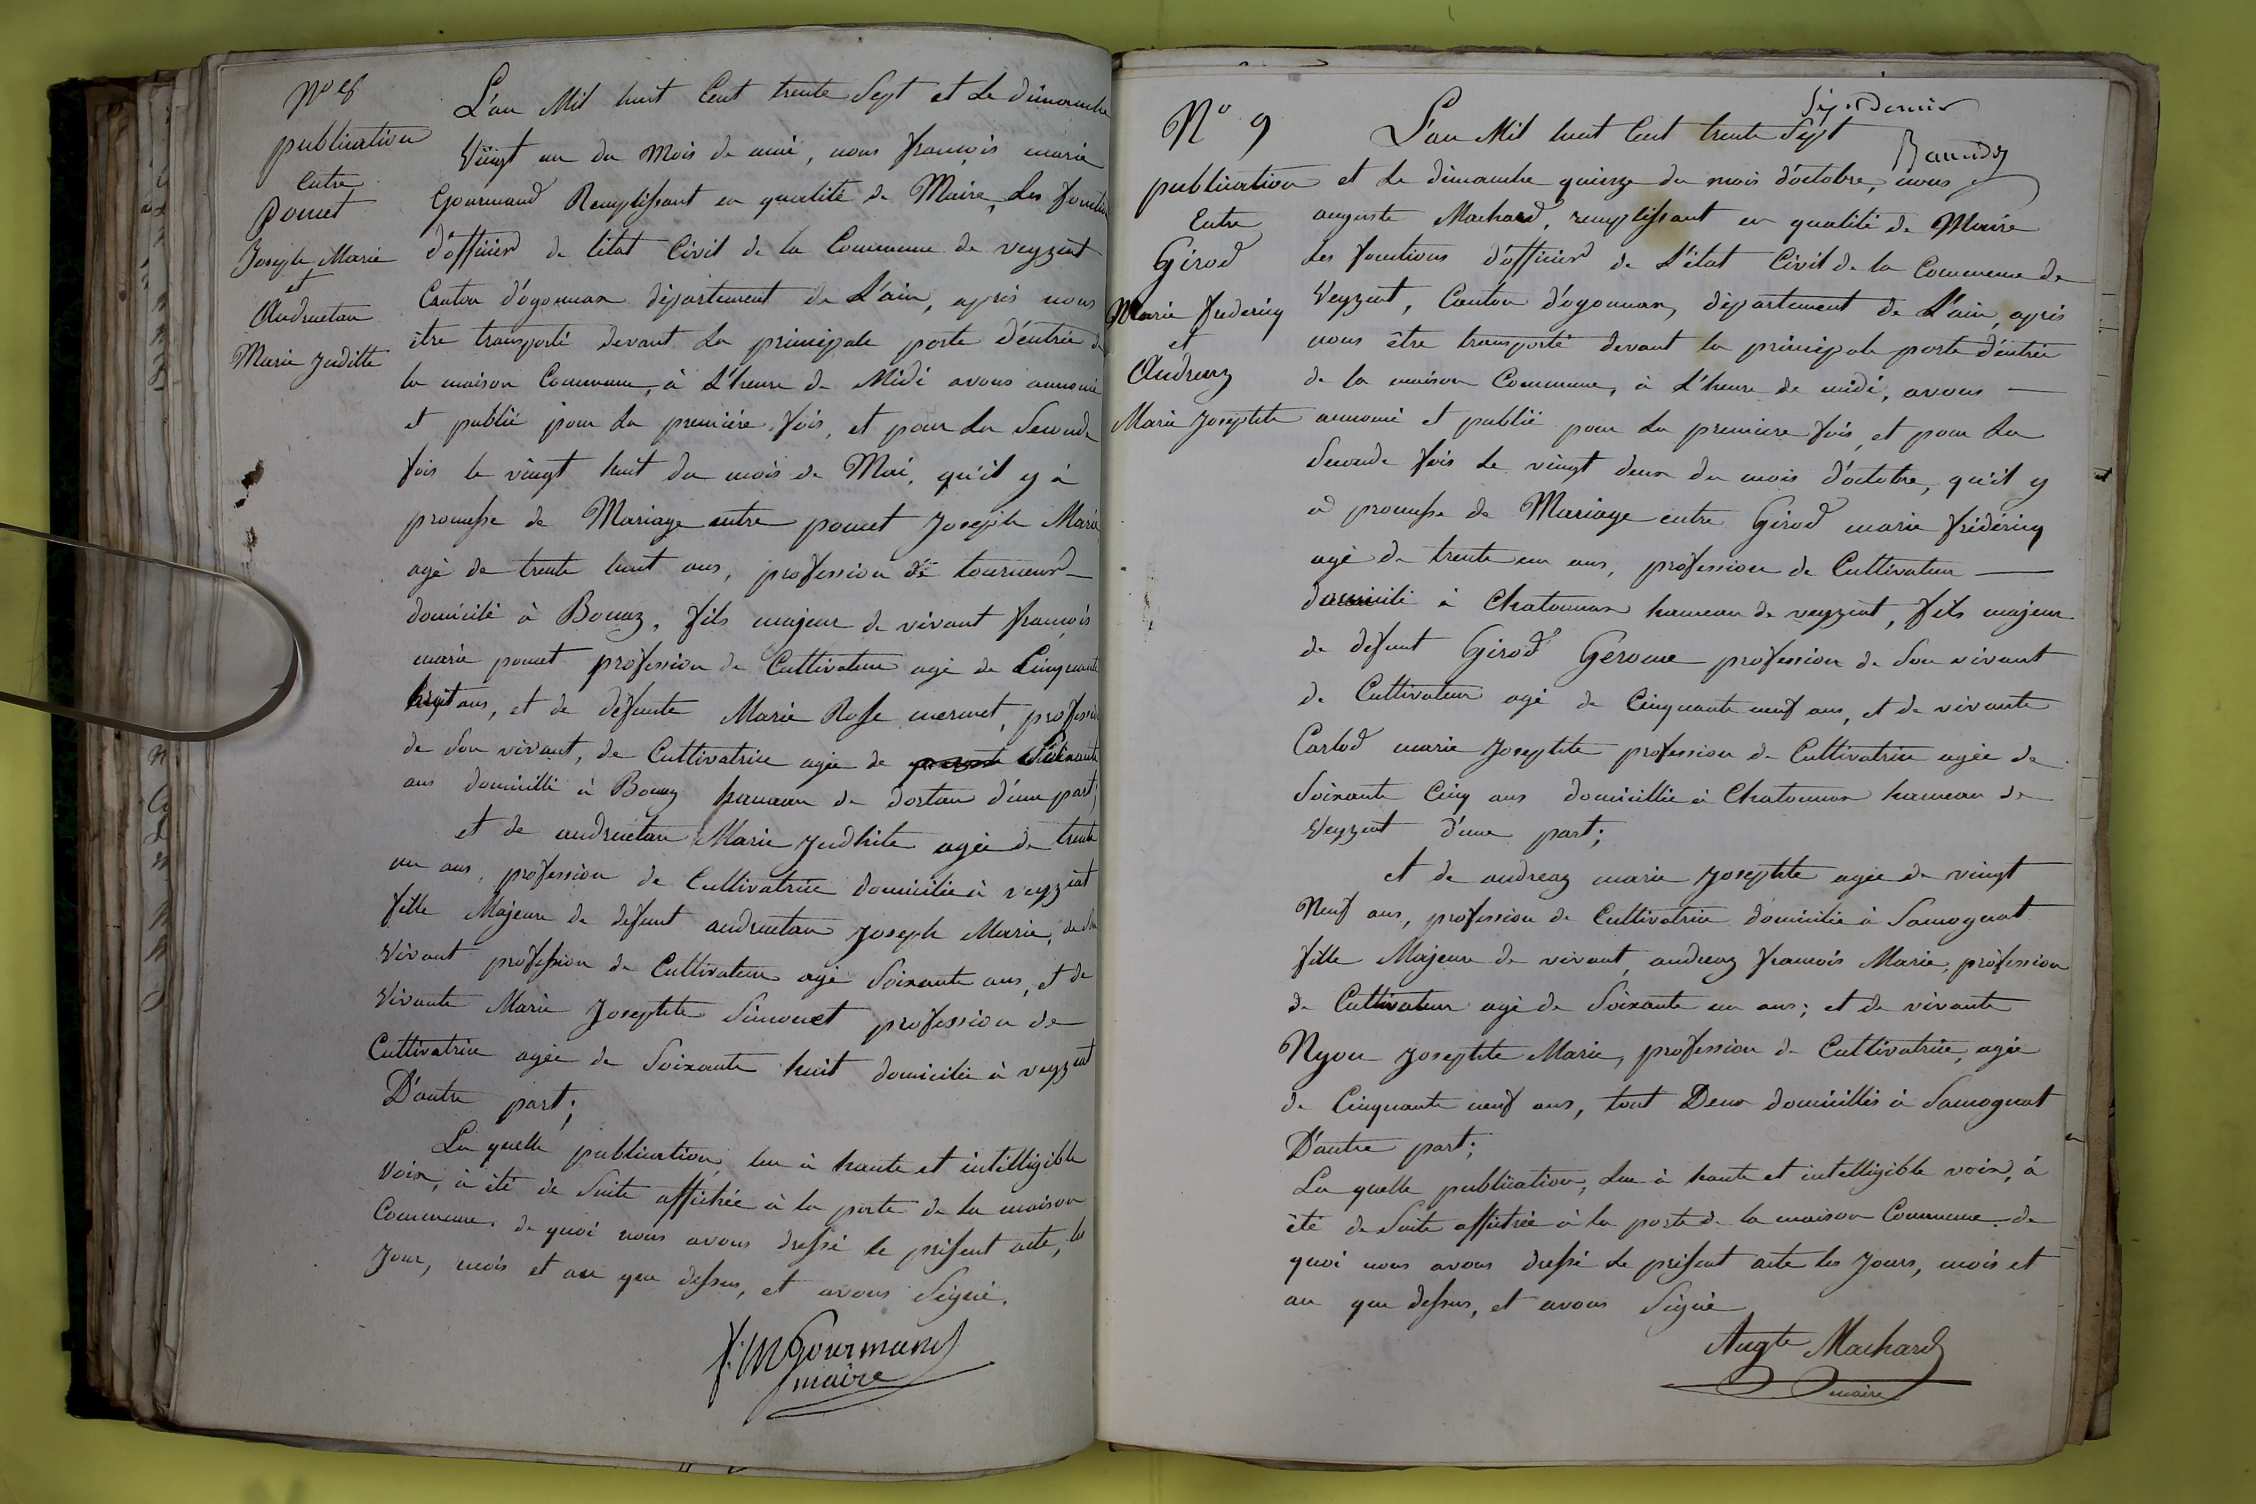 N° 8
publication
Entre
Pomet
Joseph Marie
et
Andruetan
Marie Juditte
L'an Mil huit Cent trente Sept et Le dimanche
Vingt un du Mois de mai, nous françois marie
Gourmand Remplissant en qualité de Maire, Les fonctions
d'officier de l'état Civil de la Commune de veyziat
Canton d'oyonnax département de L'ain, après nous
être transporté devant La principale porte d'entrée de
la maison Commune, à L'heure de Midi avons annoncé
et publié pour La première fois, et pour La Seconde
fois le vingt huit du mois de Mai, qu'il y à
promesse de Mariage entre pomet Joseph Marie
agé de trente huit ans, profession de tourneur
domicilié à Bouaz, fils majeur de vivant françois
marie pomet profession de Cultivateur agé de Cinquante
huit ans, et de défunte Marie Rose mermet, profession
de Son vivant, de Cultivatrice agée de Soixante
ans domicillié à Bouaz hameau de dortan d'une part;
et de andruetan Marie Judhite agée de trente
un ans, profession de Cultivatrice domiciliée à veyziat
fille Majeure de defunt andruetan Joseph Marie, de Son
Vivant profession de Cultivateur agé Soixante ans, et de
Vivante Marie Josephte Simonet profession de
Cultivatrice agée de Soixante huit domiciliée à veyziat
D'autre part;
La quelle publication, lue à haute et intelligible
Voix, à été de Suite affichée à la porte de la maison
Commune. de quoi nous avons dressé le présent acte, les
Jour, mois et an que dessus, et avons Signé.
f. M Gourmand
maire
N° 9
publication
Entre
Girod
Marie Fredericq
et
Andreaz
Marie Josephte
L'an Mil huit Cent trente Sept
et Le dimanche quinze du mois d'octobre, nous
auguste Machard, remplissant en qualité de Maire
Les fonctions d'officier de L'état Civil de la Commune de
Veyziat, Canton d'oyonnax, département de L'ain, après
nous être transporté devant la principale porte d'entrée
de la maison Commune, à L'heure de midi, avons
annoncé et publié pour La premiere fois, et pour La
Seconde fois Le vingt deux du mois d'octobre, qu'il y
a promesse de Mariage entre Girod marie frédéricq
agé de trente un ans, profession de Cultivateur
domicilié à Chatonnax hameau de veyziat, fils majeur
de défunt Girod Gerome profession de Son vivant
de Cultivateur agé de Cinquante neuf ans, et de vivante
Carlod marie Josephte profession de Cultivatrice agée de
Soixante Cinq ans domicilliée à Chatonnax hameau de
Veyziat d'une part;
et de andreaz marie Josephte agée de vingt
Neuf ans, profession de Cultivatrice domiciliée à Samognat
fille Majeure de vivant, andreaz françois Marie, profession
de Cultivateur agé de Soixante un ans; et de vivante
Nyon Josephte Marie, profession de Cultivatrice, agée
de Cinquante neuf ans, tout Deux domicilliés à Samognat
D'autre part;
La quelle publication, Lue à haute et intelligible voix, à
été de Suite affichée à la porte de la maison Commune. de
quoi nous avons dressé Le présent acte les Jours, mois et
an que dessus, et avons Signé
Augte Machard
maire